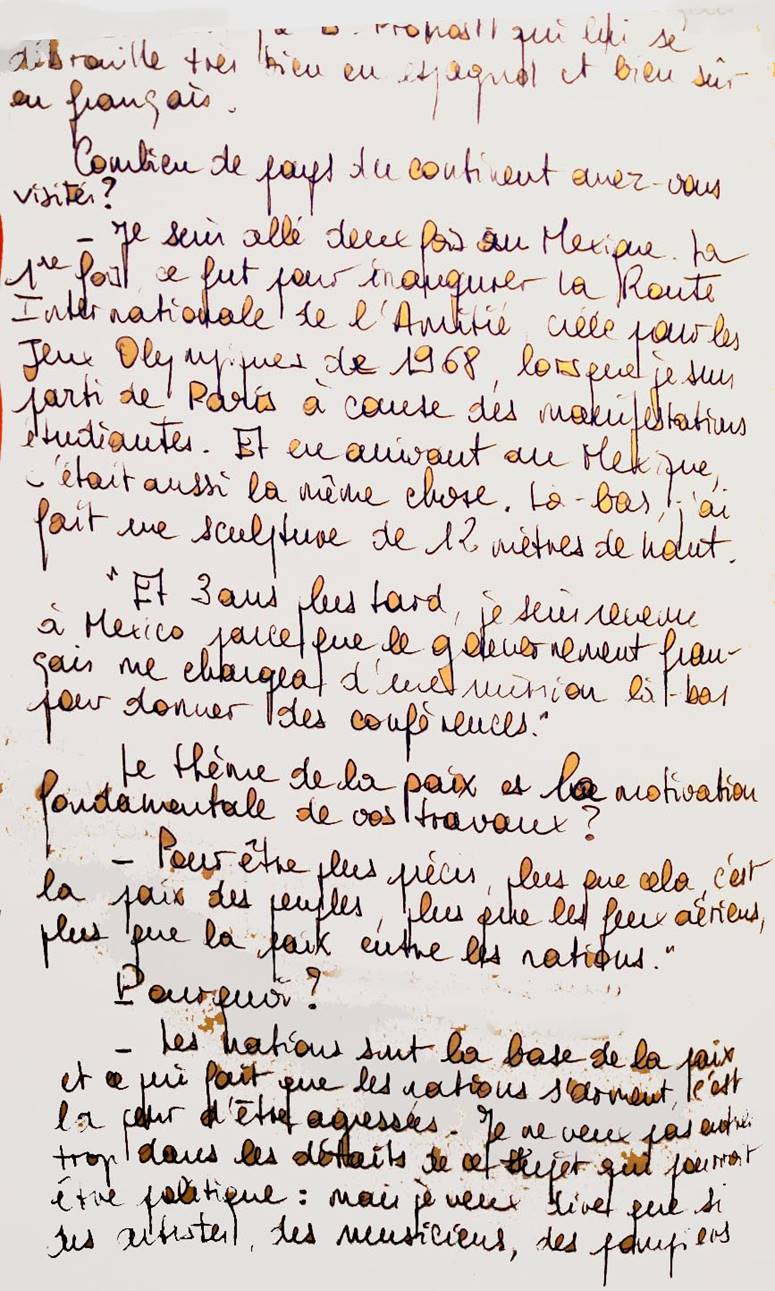 qui lui se
débrouille très bien en espagnol et bien sûr
en français.
Combien de pays du continent avez-vous
visités?
– Je suis allé deux fois au Mexique. La
1re fois, ce fut pour inaugurer la Route
Internationale de l'Amitié, créée pour les
Jeux Olympiques de 1968, lorsque je suis
parti de Paris à cause des manifestations
étudiantes. Et en arrivant au Mexique,
c'était aussi la même chose. Là-bas, j'ai
fait une sculpture de 12 mètres de haut.
"Et 3 ans plus tard, je suis revenu
à Mexico parce que le gouvernement fran-
çais me chargea d'une mission là-bas
pour donner des conférences."
Le thème de la paix est la motivation
fondamentale de vos travaux?
– Pour être plus précis, plus que cela, c'est
la paix des peuples, plus que les feux aériens,
plus que la paix entre les nations."
Pourquoi?
– Les nations sont la base de la paix
et ce qui fait que les nations s'arment, c'est
la peur d'être agressées. Je ne veux pas entrer
trop dans les détails de ce sujet qui pourrait
être politique: mais je veux dire que si
des artistes, des musiciens, des pompiers